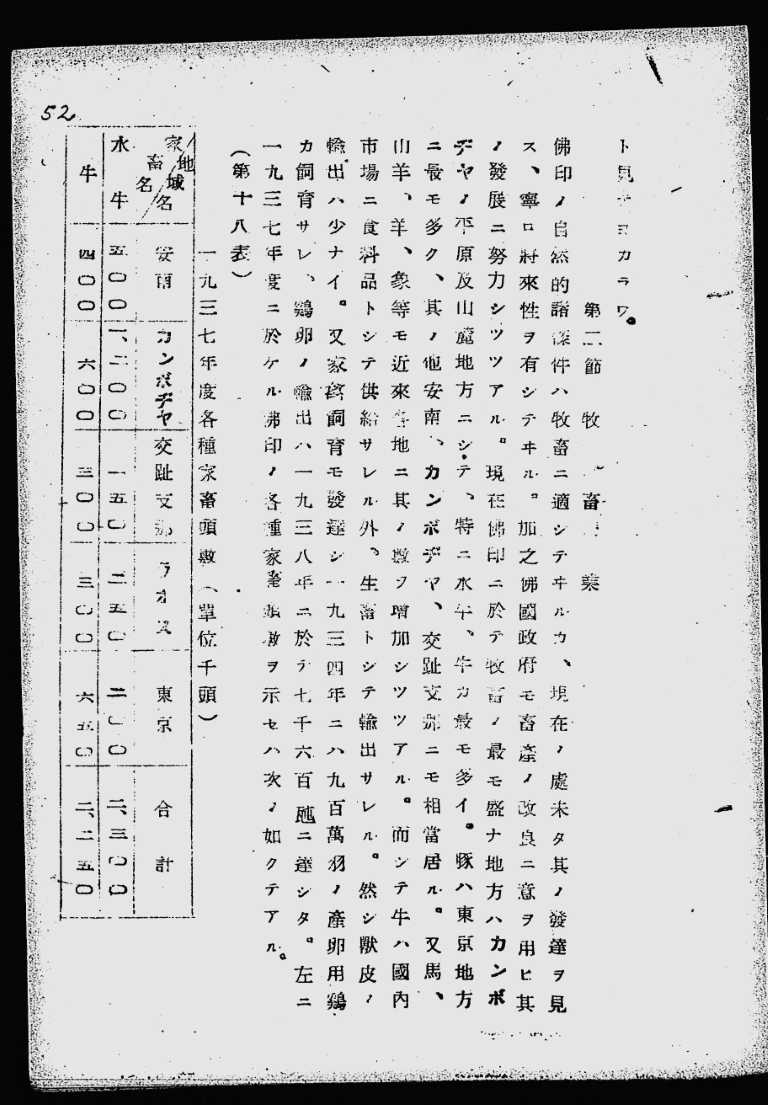 52
ト見テヨカラウ。
第二節 牧畜業
佛印ノ自然的諸條件ハ牧畜ニ適シテヰルカ、現在ノ處未タ其ノ發達ヲ見
ス、寧ロ將來性ヲ有シテヰル。加之佛國政府モ畜產ノ改良ニ意ヲ用ヒ其
ノ發展ニ努力シツツアル。現在佛印ニ於テ牧畜ノ最モ盛ナ地方ハカンボ
ヂヤノ平原及山麓地方ニシテ、特ニ水牛、牛カ最モ多イ。豚ハ東京地方
ニ最モ多ク、其ノ他安南、カンボヂヤ、交趾支那ニモ相當居ル。又馬、
山羊、羊、象等モ近來各地ニ其ノ數ヲ增加シツツアル。而シテ牛ハ國內
市場ニ食料品トシテ供給サレル外、生畜トシテ輸出サレル。然シ獸皮ノ
輸出ハ少ナイ。又家禽飼育モ發達シ一九三四年ニハ九百萬羽ノ產卵用鷄
カ飼育サレ、鷄卵ノ輸出ハ一九三八年ニ於テ七千六百瓲ニ達シタ。左ニ
一九三七年度ニ於ケル佛印ノ各種家畜頭數ヲ示セハ次ノ如クテアル。
(第十八表)
一九三七年度各種家畜頭數(單位千頭)
家畜名/地域名 安南 カンボヂヤ 交趾支那 ラオス 東京 合計
水牛 五〇〇 一、二〇〇 一五〇 二五〇 二〇〇 二、三〇〇
牛 四〇〇 六〇〇 三〇〇 三〇〇 六五〇 二、二五〇